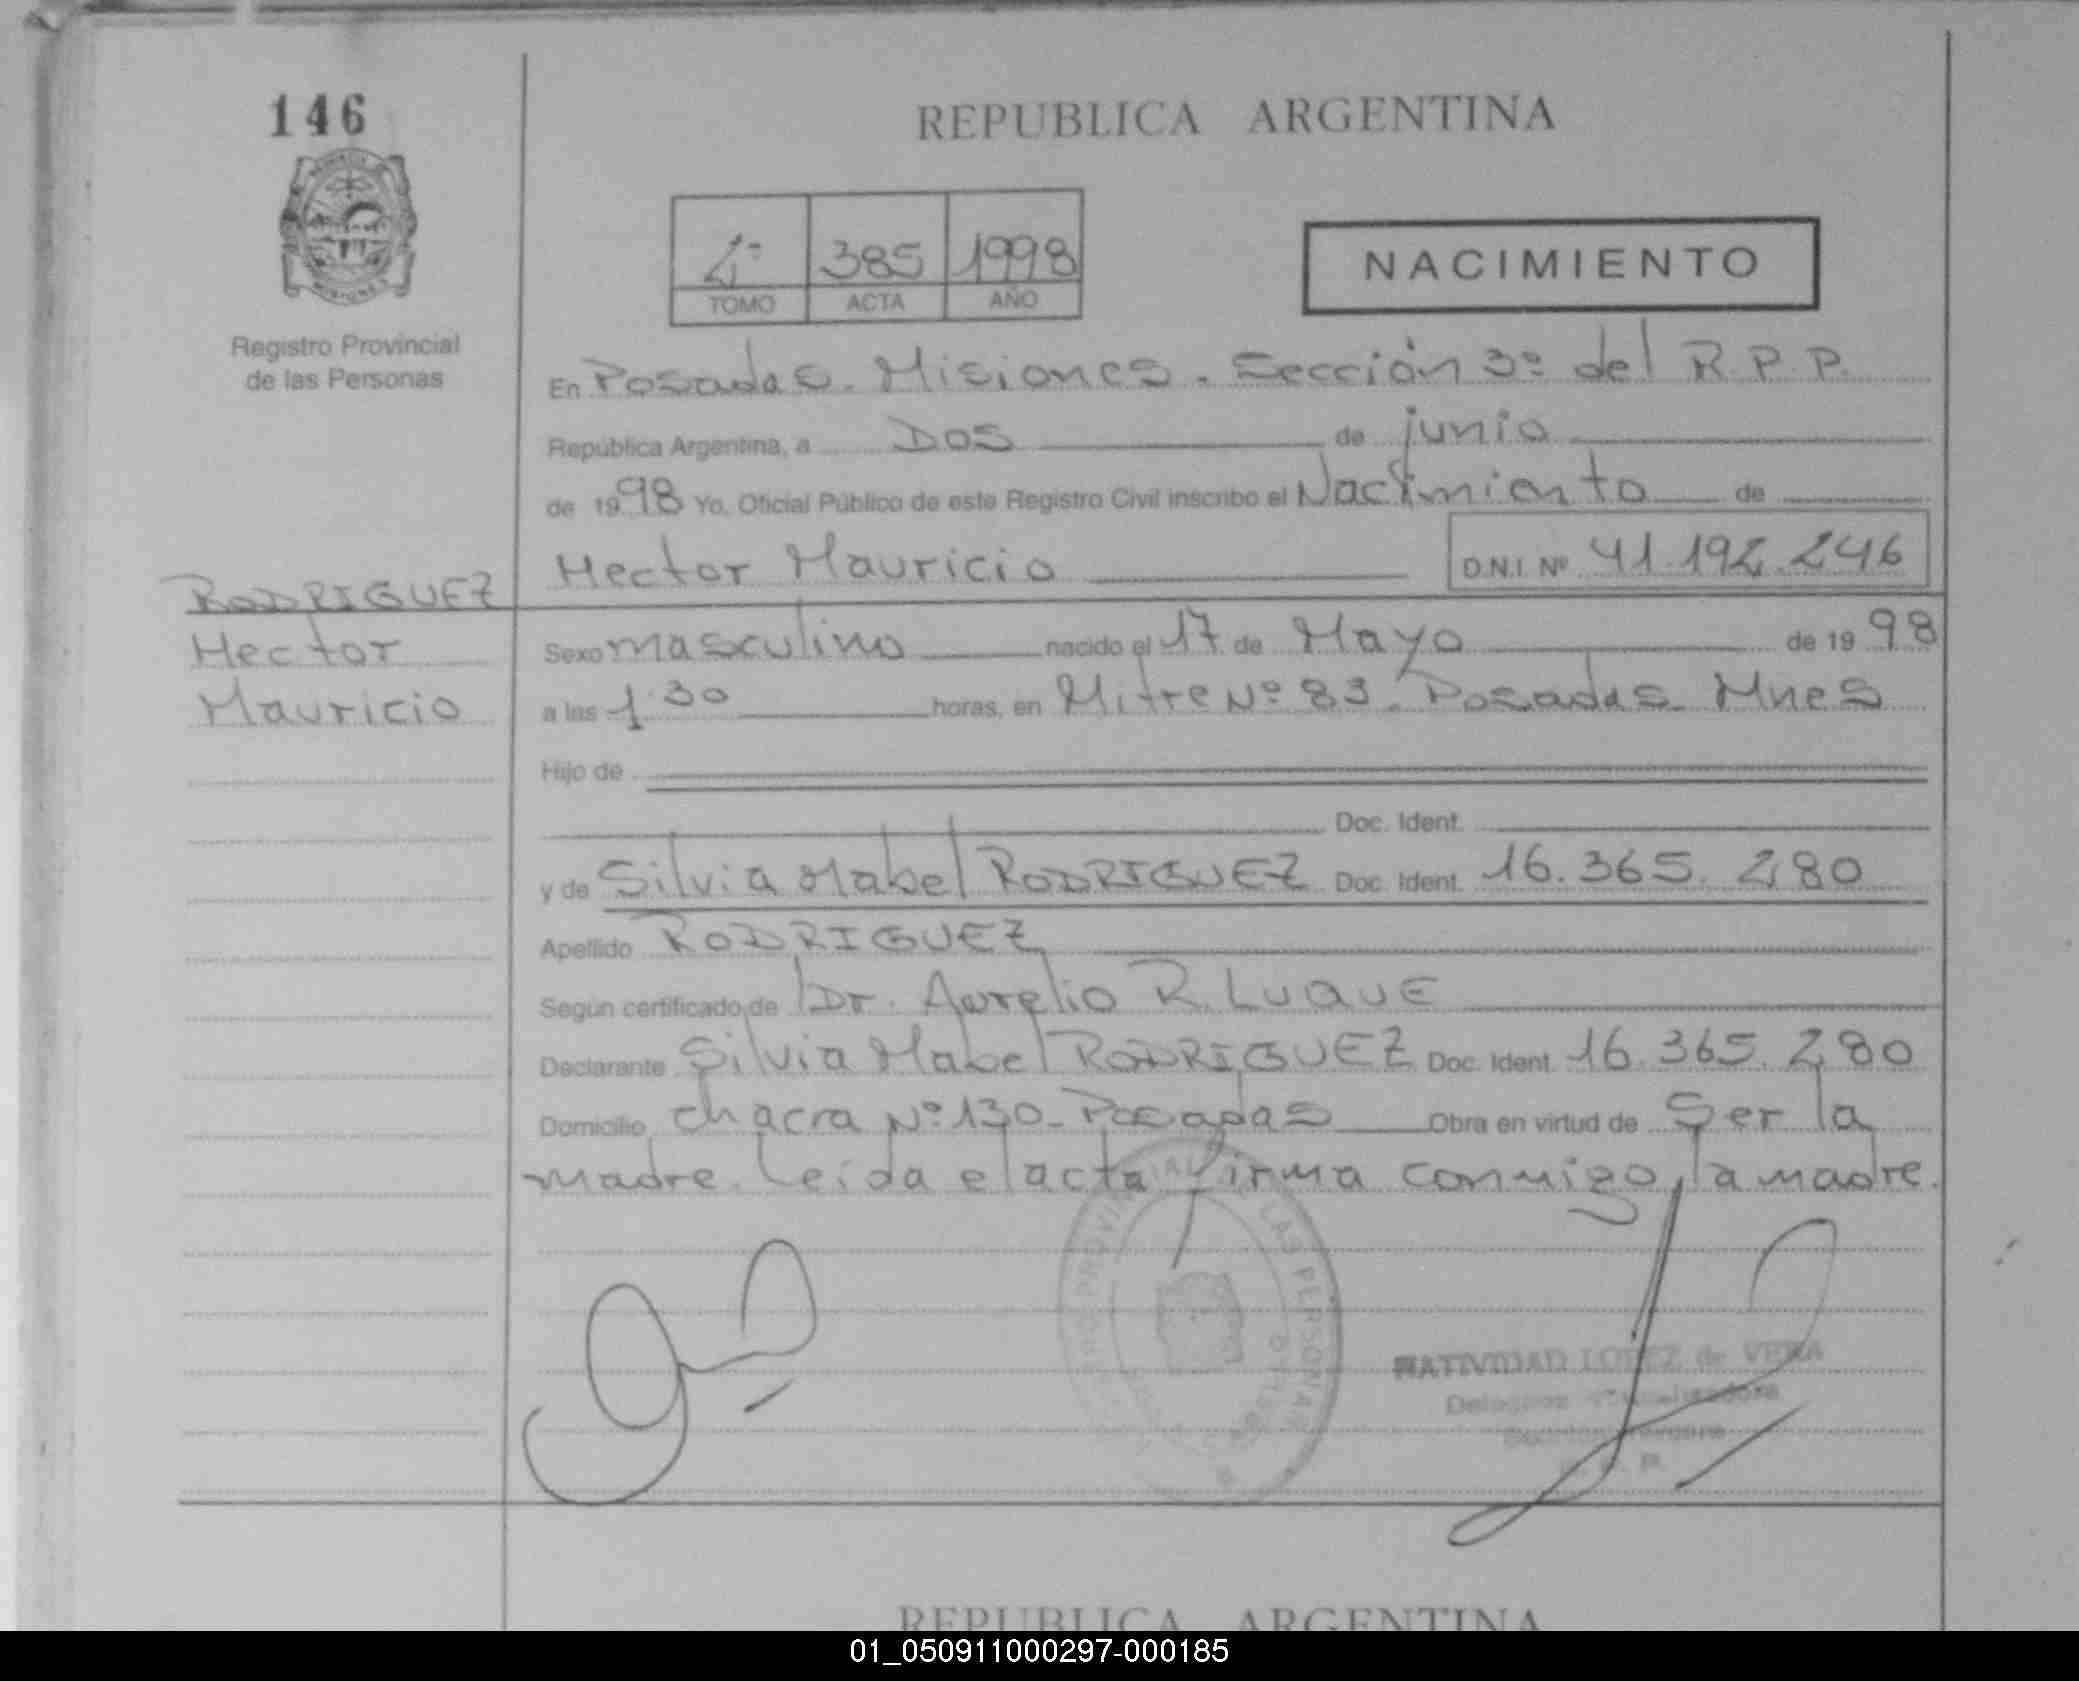 146
REPUBLICA ARGENTINA
385 1998
TOMO ACTA AÑO
NACIMIENTO
Registro Provincial
de las Personas
En Posadas. Misiones. Sección 3º del R.P.P.
República Argentina, a Dos de junio
de 1998 Yo, Oficial Público de este Registro Civil inscribo el Nacimiento de
Hector Mauricio D.N.I. Nº 41.192.246
RODRIGUEZ
Hector
Mauricio
Sexo masculino nacido el 17 de Mayo de 1998
a las 1.30 horas, en Mitre Nº 83. Posadas Mnes
Hijo de
Doc. Ident.
y de Silvia Mabel RODRIGUEZ Doc. Ident. 16.365.280
Apellido RODRIGUEZ
Según certificado de Dr. Aurelio R. LUQUE
Declarante Silvia Mabel RODRIGUEZ Doc. Ident. 16.365.280
Domicilio chacra Nº 130 - Posadas Obra en virtud de Ser la
madre. Leída el acta firma conmigo, la madre.
NATIVIDAD LOPEZ de VERA
REPUBLICA ARGENTINA
01_050911000297-000185